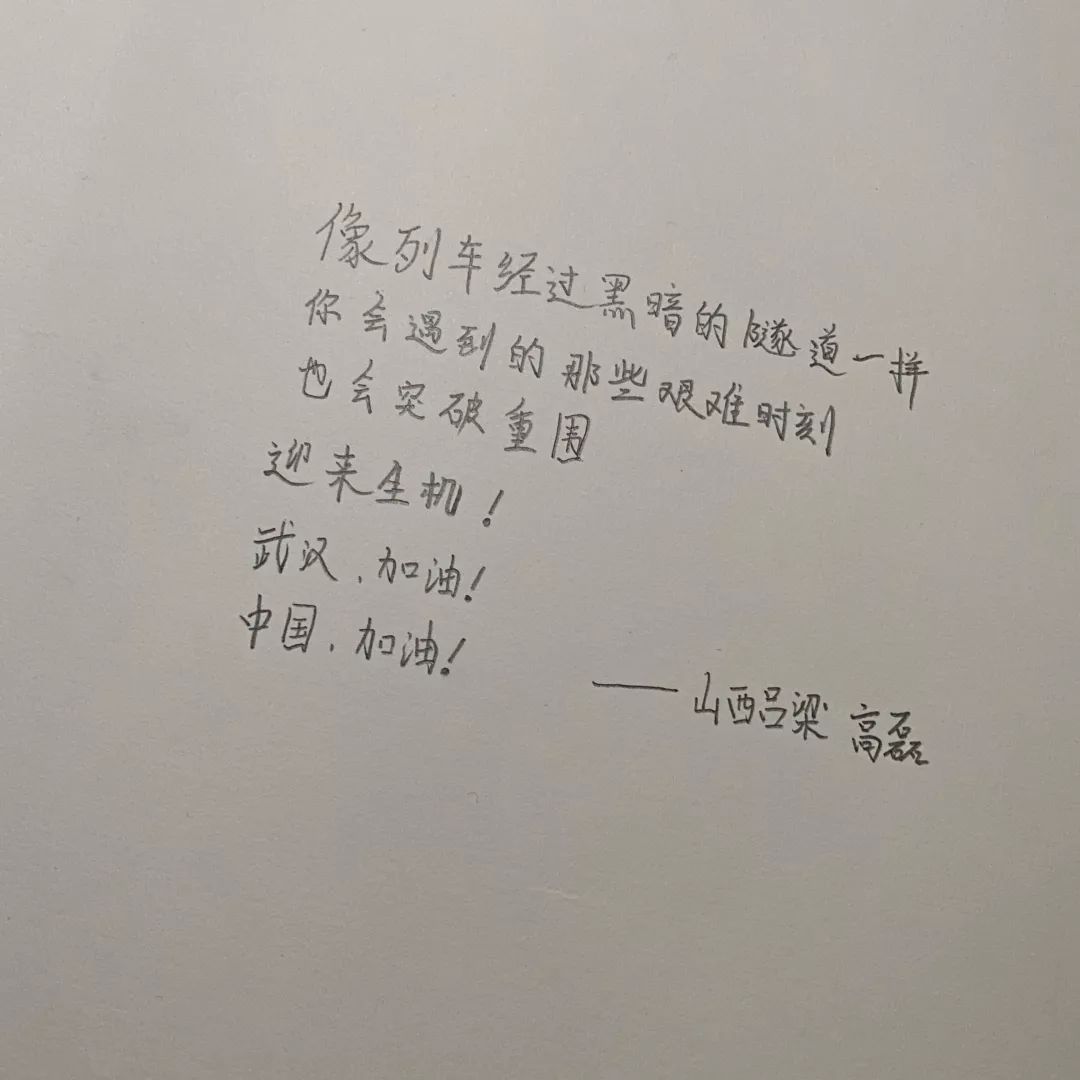 像列车经过黑暗的隧道一样
你会遇到的那些艰难时刻
也会突破重围
迎来生机！
武汉，加油！
中国，加油！
——山西吕梁 高磊